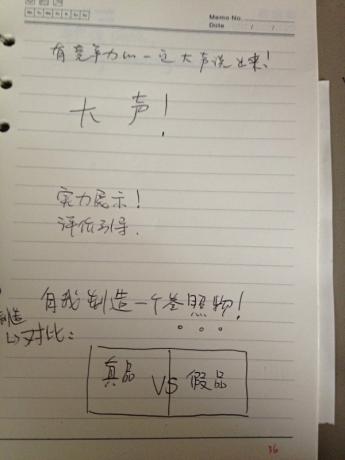 Memo No.
Date / /
有竞争力的一定大声说出来!
大声!
实力展示!
评价引导.
自我制造一个参照物!
制造
↳对比:
真品 VS 假品
36